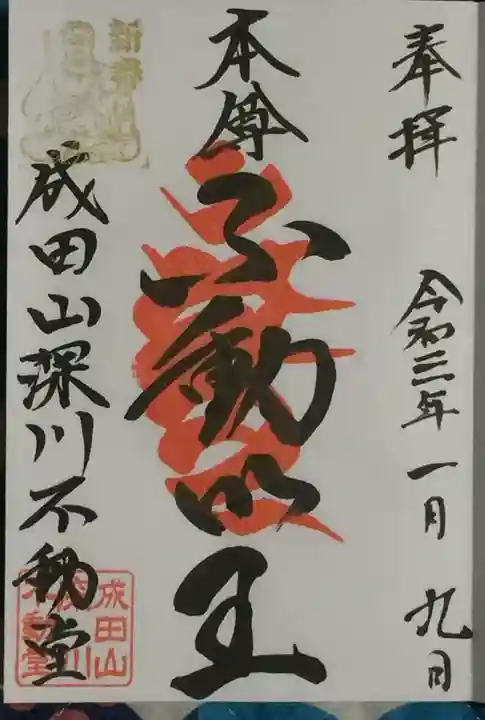 奉拝
令和三年一月九日
本尊
不動明王
成田山深川不動堂
成田山
深川
不動堂